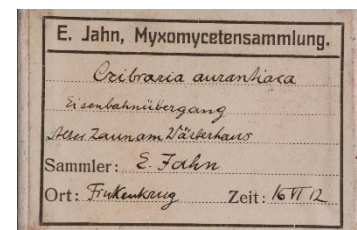 E. Jahn, Myxomycetensammlung.
Cribraria aurantiaca
Eisenbahnübergang
Alter Zaun am Wärterhaus
Sammler: E. Jahn
Ort: Finkenkrug Zeit: 16 VI 12